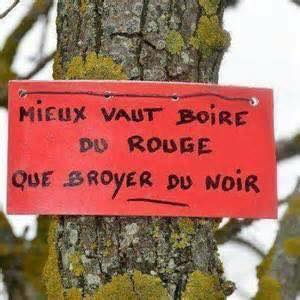 MIEUX VAUT BOIRE
DU ROUGE
QUE BROYER DU NOIR